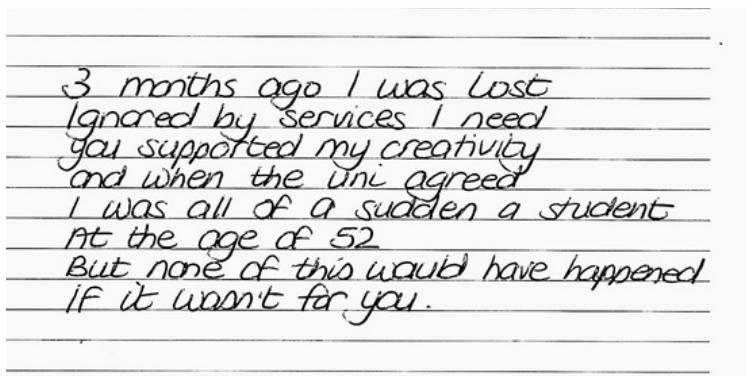 3 months ago I was lost
Ignored by services I need
you supported my creativity
and when the uni agreed
I was all of a sudden a student
At the age of 52
But none of this would have happened
IF it wasn't for you.